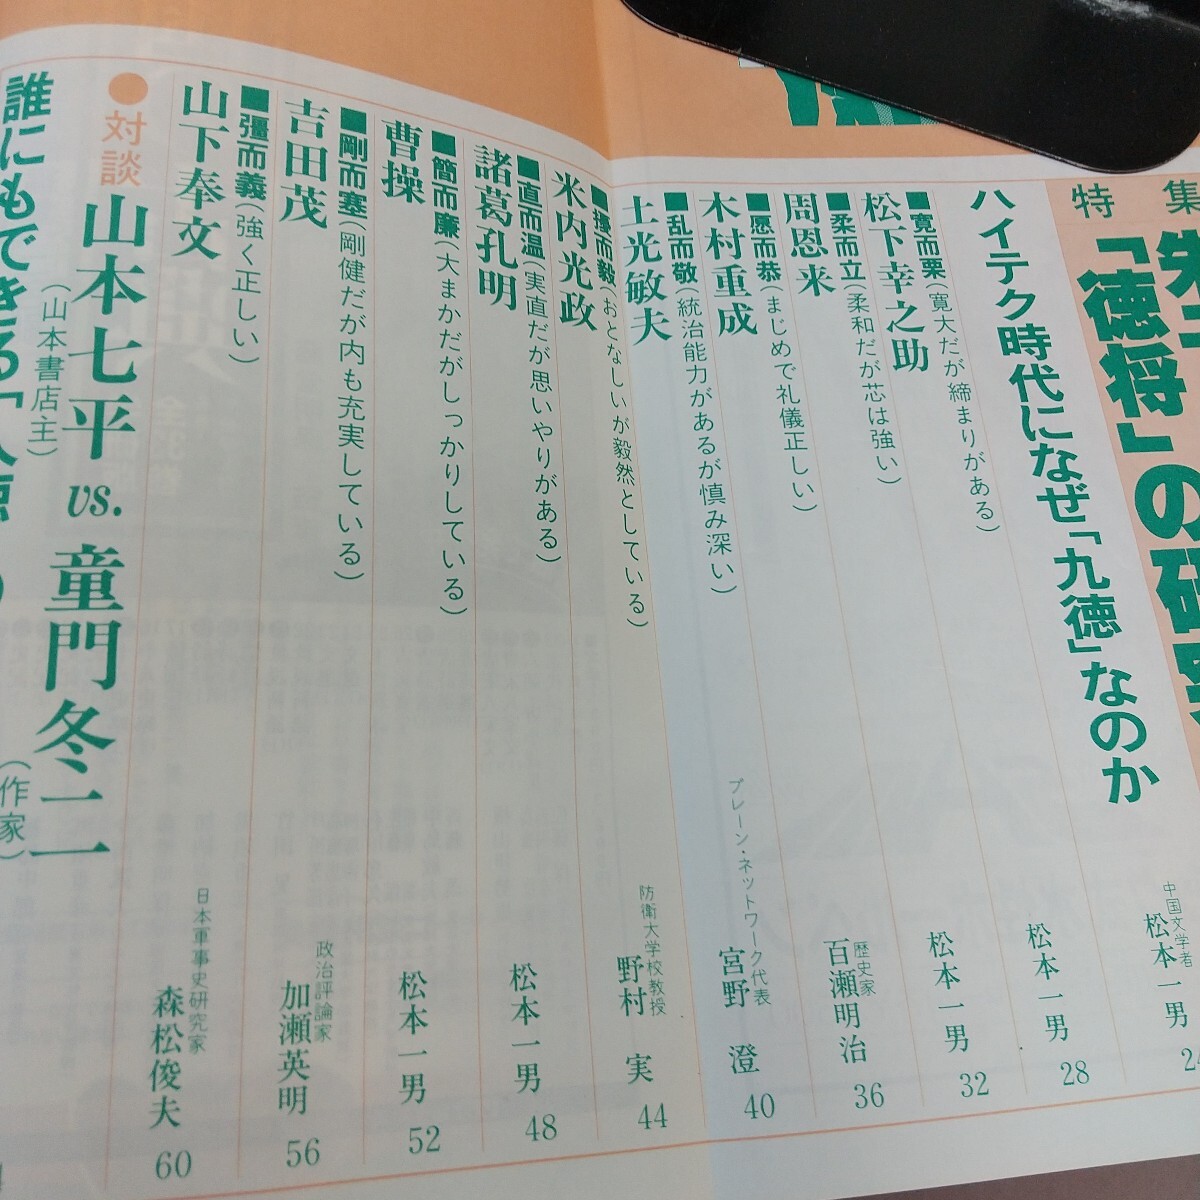 特集
「徳将」の研究
ハイテク時代になぜ「九徳」なのか
中国文学者
松本一男 24
■寛而栗(寛大だが締まりがある)
松下幸之助
松本一男 28
■柔而立(柔和だが芯は強い)
周恩来
松本一男 32
■愿而恭(まじめで礼儀正しい)
木村重成
歴史家
百瀬明治 36
■乱而敬(統治能力があるが慎み深い)
土光敏夫
ブレーン・ネットワーク代表
宮野 澄 40
■擾而毅(おとなしいが毅然としている)
米内光政
防衛大学校教授
野村 実 44
■直而温(実直だが思いやりがある)
諸葛孔明
松本一男 48
■簡而廉(大まかだがしっかりしている)
曹操
松本一男 52
■剛而塞(剛健だが内も充実している)
吉田茂
政治評論家
加瀬英明 56
■彊而義(強く正しい)
山下奉文
日本軍事史研究家
森松俊夫 60
●対談
山本七平 vs. 童門冬二
(山本書店主)
(作家)
誰にもできる「人徳